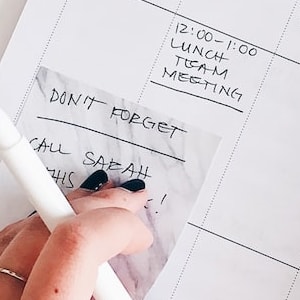 12:00-1:00
LUNCH
TEAM
MEETING
DON'T FORGET
CALL SARAH
THIS
!